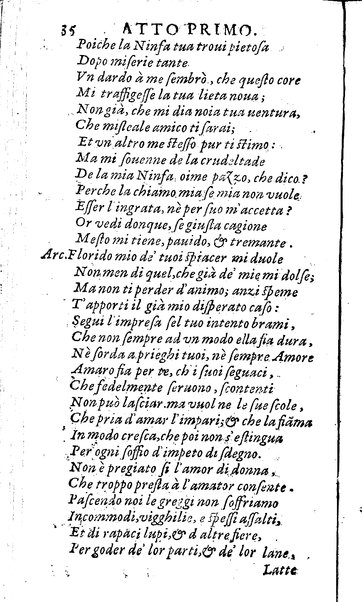 35 ATTO PRIMO.
Poiche la Ninfa tua troui pietosa
Dopo miserie tante
Vn dardo à me sembrò, che questo core
Mi traffigesse la tua lieta noua;
Non già, che mi dia noia tua uentura,
Che misleale amico ti sarai;
Et un'altro me stesso pur ti stimo:
Ma mi souenne de la crudeltade
De la mia Ninfa, oime pazzo, che dico?
Perche la chiamo mia se mia non vuole
Esser l'ingrata, nè per suo m'accetta?
Or vedi donque, se giusta cagione
Mesto mi tiene, pauido, & tremante.
Arc. Florido mio de' tuoi spiacer mi duole
Non men di quel, che già de' mie mi dolse;
Ma non ti perder d'animo; anzi speme
T'apporti il già mio disperato caso:
Segui l'impresa sel tuo intento brami,
Che non sempre ad vn modo ella fia dura,
Nè sorda a prieghi tuoi, nè sempre Amore
Amaro fia per te, ch'i suoi seguaci,
Che fedelmente seruono, scontenti
Non può lasciar. ma vuol ne le sue scole,
Che pria d'amar l'impari; & che la fiãma
In modo cresca, che poi non s'estingua
Per ogni soffio d'impeto di sdegno.
Non è pregiato sì l'amor di donna,
Che troppo presta à l'amator consente.
Pascendo noi le greggi non soffriamo
Incommodi, vigghilie, e spessi assalti,
Et di rapaci lupi, & d'altre fiere,
Per goder de' lor parti, & de' lor lane.
Latte